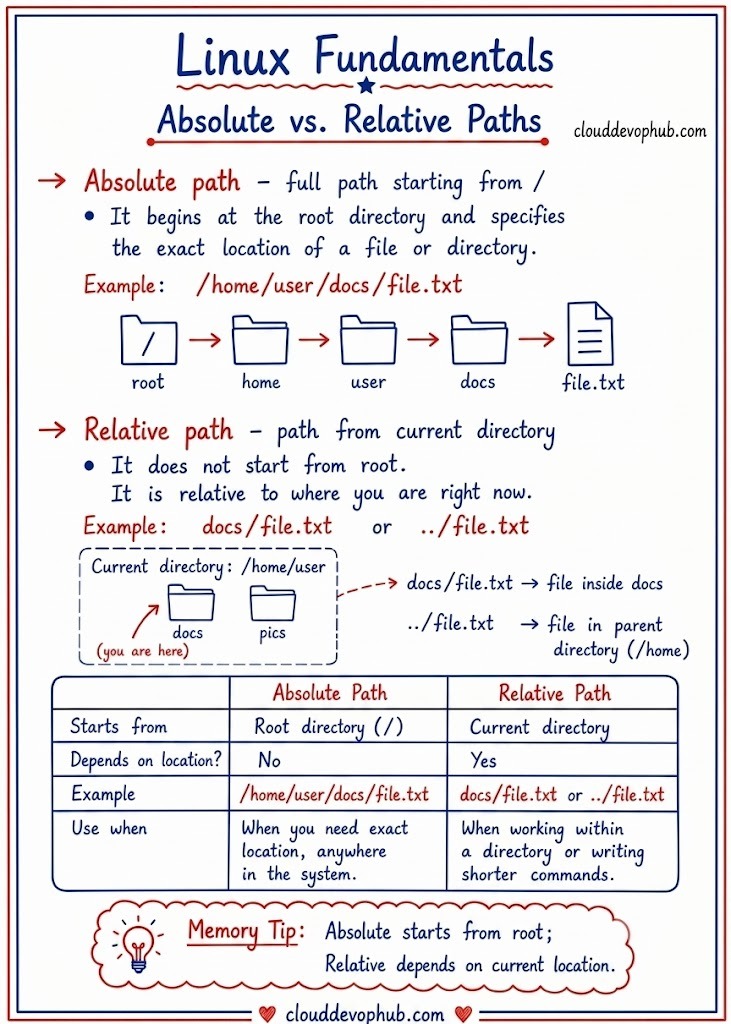 Linux Fundamentals
Absolute vs. Relative Paths
clouddevophub.com
→ Absolute path – full path starting from /
• It begins at the root directory and specifies
the exact location of a file or directory.
Example: /home/user/docs/file.txt
/
root → home → user → docs → file.txt
→ Relative path – path from current directory
• It does not start from root.
It is relative to where you are right now.
Example: docs/file.txt or ../file.txt
Current directory: /home/user
docs pics
(you are here)
docs/file.txt → file inside docs
../file.txt → file in parent
directory (/home)
Absolute Path Relative Path
Starts from Root directory (/) Current directory
Depends on location? No Yes
Example /home/user/docs/file.txt docs/file.txt or ../file.txt
Use when When you need exact When working within
location, anywhere a directory or writing
in the system. shorter commands.
Memory Tip: Absolute starts from root;
Relative depends on current location.
clouddevophub.com